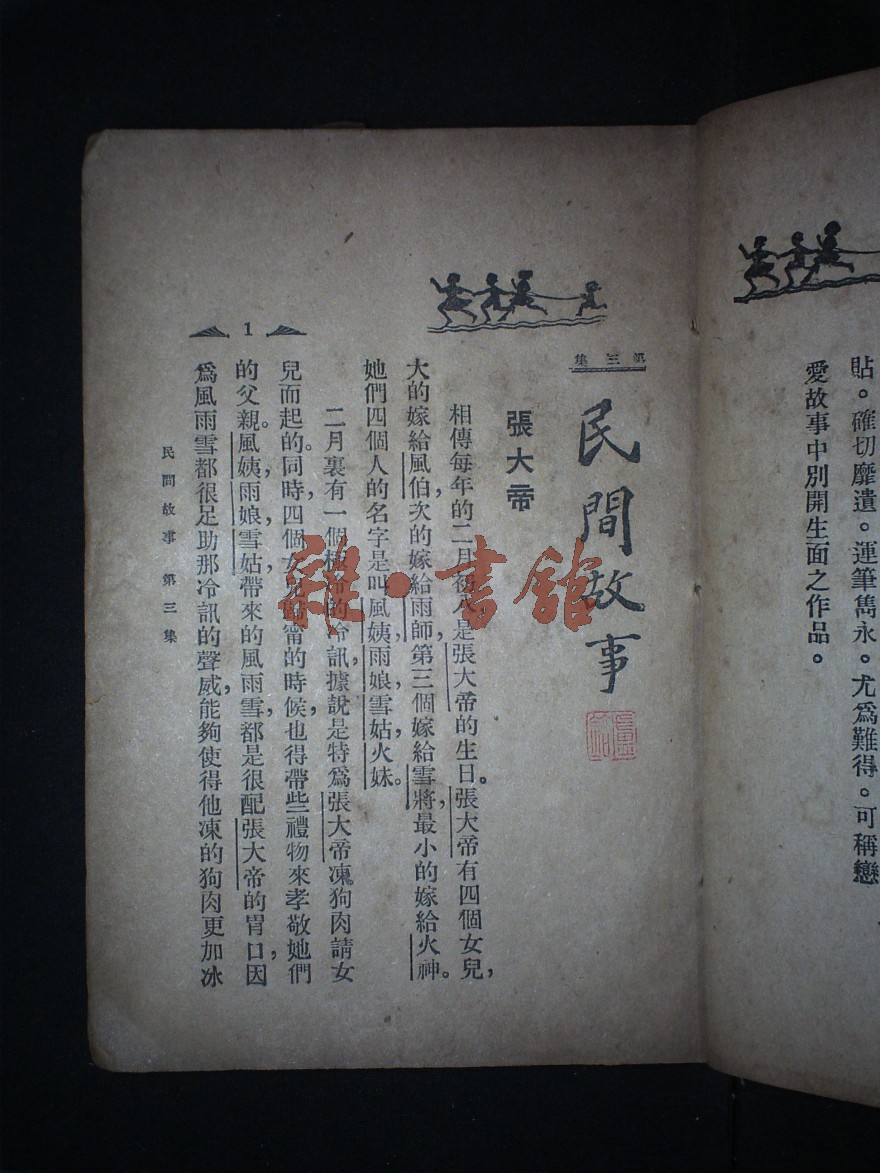 貼。確切靡遺。運筆雋永。尤爲難得。可稱戀
愛故事中別開生面之作品。
第三集
民間故事
張大帝
相傳每年的二月初八是張大帝的生日。張大帝有四個女兒,
大的嫁給風伯,次的嫁給雨師,第三個嫁給雪將,最小的嫁給火神。
她們四個人的名字是叫風姨,雨娘,雪姑,火妹。
二月裏有一個極冷的冷訊,據說是特爲張大帝凍狗肉請女
兒而起的。同時,四個女兒歸甯的時候,也得帶些禮物來孝敬她們
的父親。風姨,雨娘,雪姑帶來的風雨雪,都是很配張大帝的胃口,因
爲風雨雪都很足助那冷訊的聲威,能夠使得他凍的狗肉更加冰
1
民間故事 第三集
雜·書館